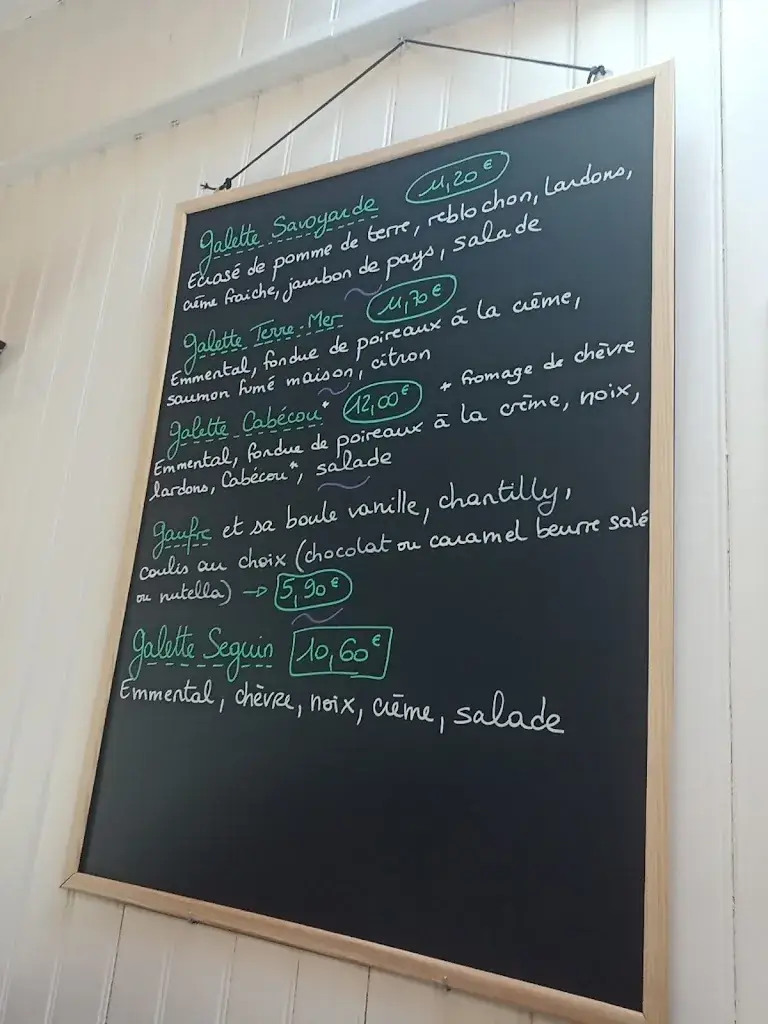 Galette Savoyarde 11,20€
Ecrasé de pomme de terre, reblochon, lardons,
crème fraiche, jambon de pays, salade
Galette Terre-Mer 11,70€
Emmental, fondue de poireaux à la crème,
saumon fumé maison, citron
Galette Cabécou* 12,00€ * fromage de chèvre
Emmental, fondue de poireaux à la crème, noix,
lardons, Cabécou*, salade
Gaufre et sa boule vanille, chantilly,
coulis au choix (chocolat ou caramel beurre salé
ou nutella) → 5,90€
Galette Seguin 10,60€
Emmental, chèvre, noix, crème, salade